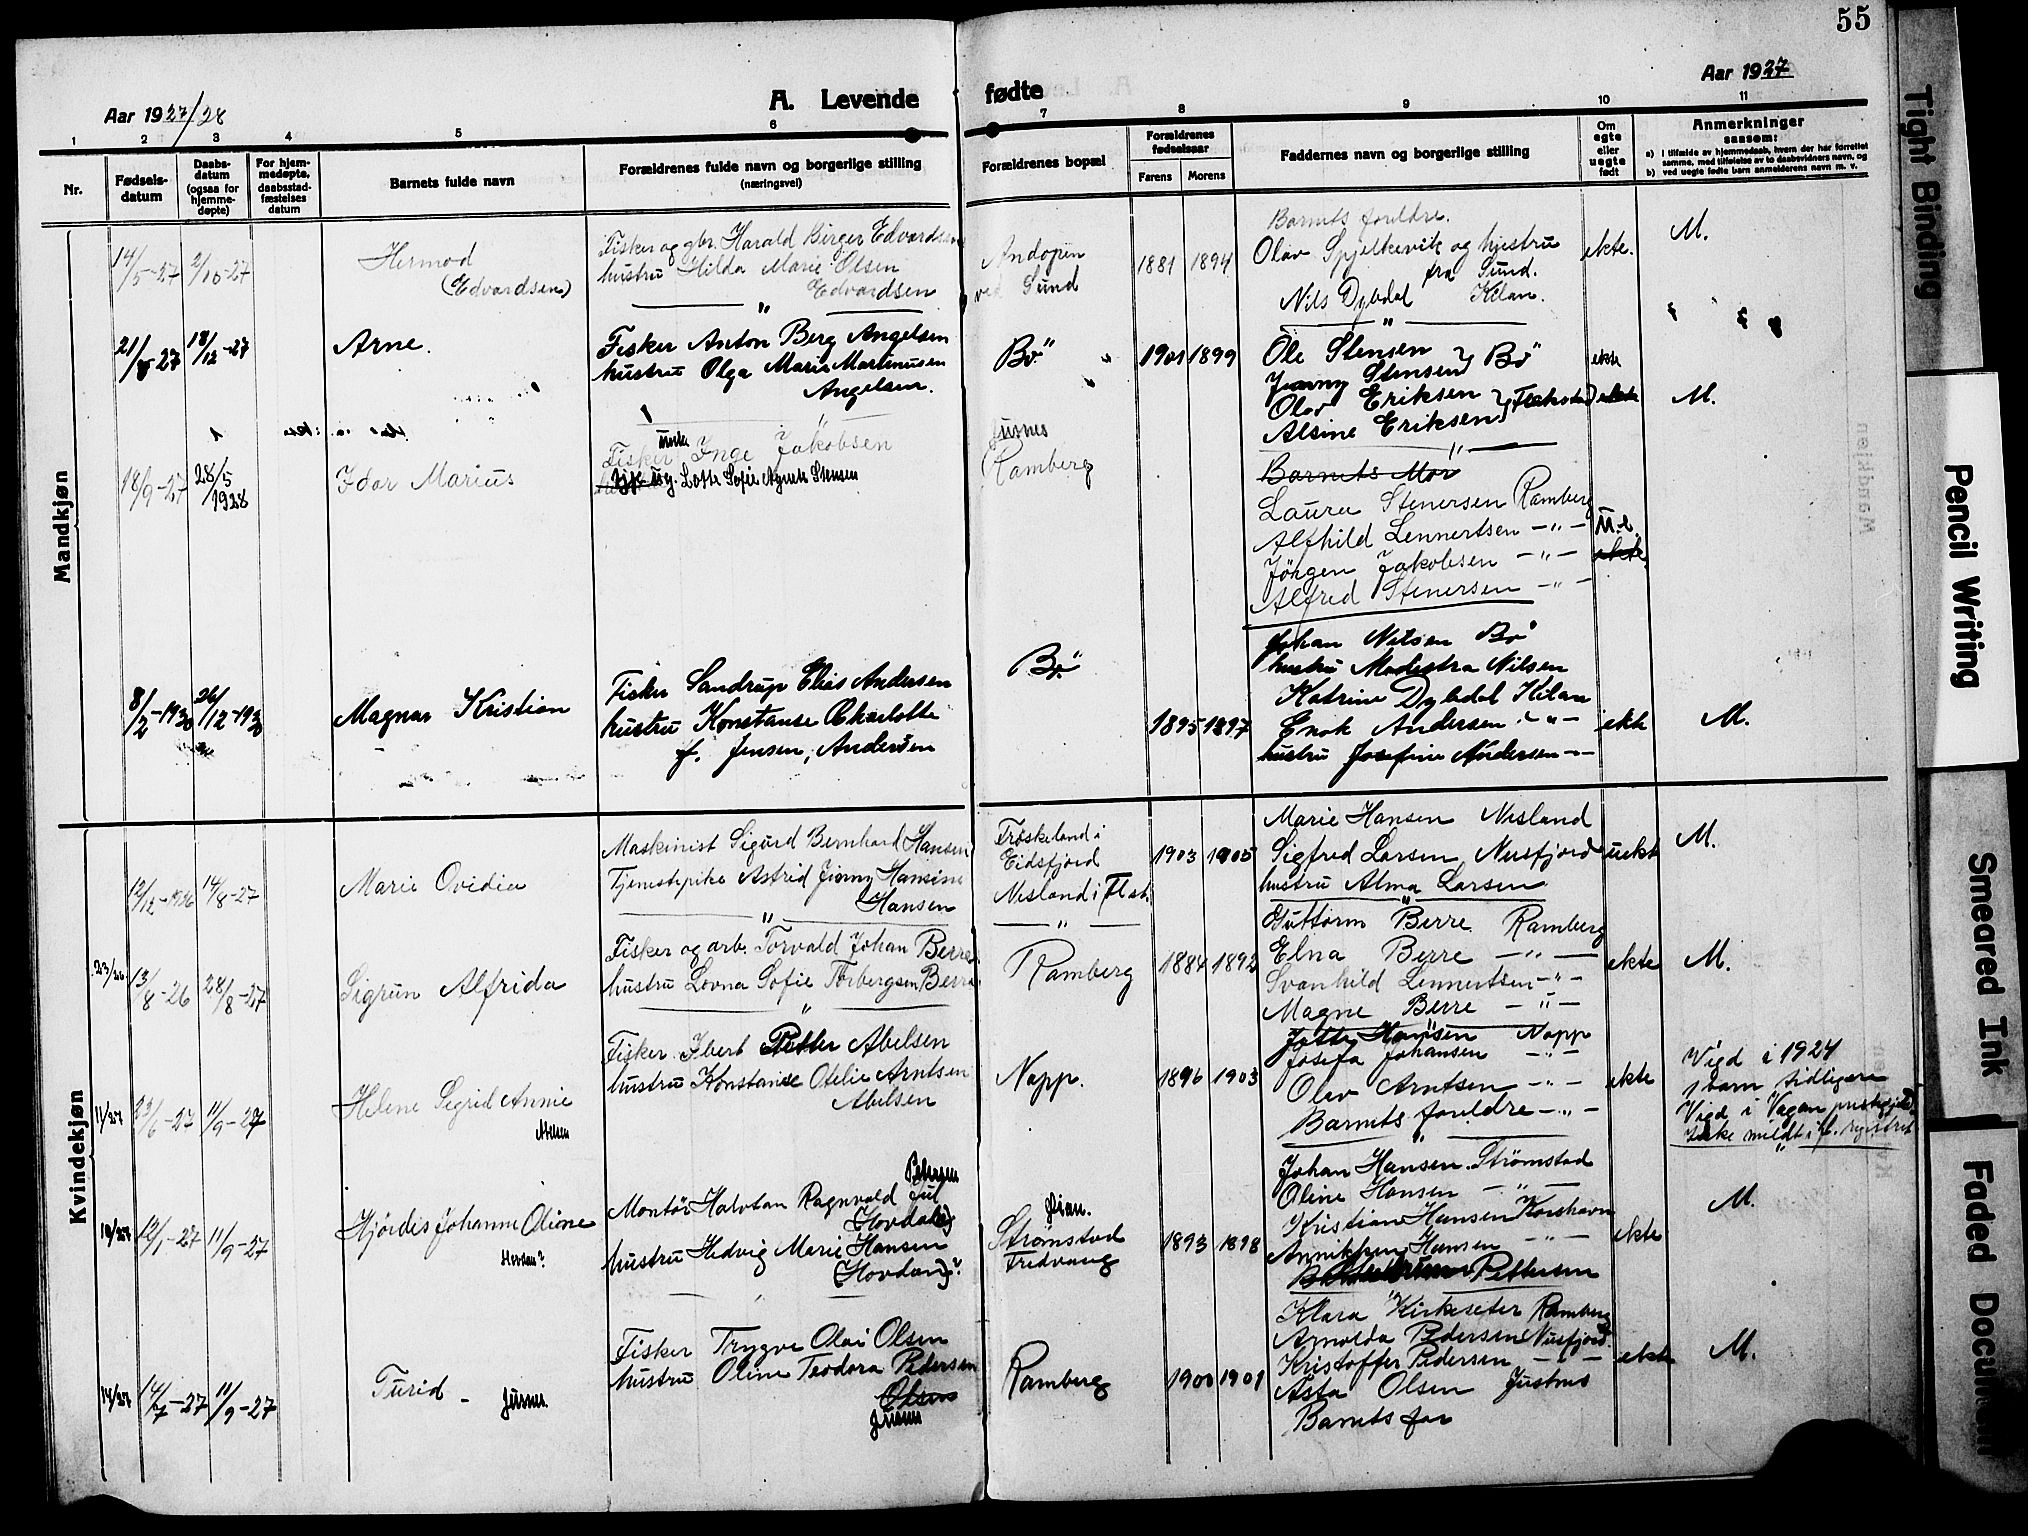 55
Aar 1927/28
A. Levende
fødte
Aar 1927
1 2 3 4 5 6 7 8 9 10 11
Nr.
Fødsels-
datum
Daabs-
datum
(ogsaa for
hjemme-
døpte)
For hjem-
medøpte,
daabsstad-
fæstelses
datum
Barnets fulde navn
Forældrenes fulde navn og borgerlige stilling
(næringsvei)
Forældrenes bopæl
Forældrenes
fødselsaar
Farens Morens
Faddernes navn og borgerlige stilling
Om
egte
eller
uegte
født
Anmerkninger
saasom:
a) i tilfælde av hjemmedaab, hvem der har forrettet
samme, med tilføielse av to daabsvidners navn, og
b) ved uegte fødte barn anmelderens navn m. v.
Mandkjøn
14/5-27 2/10-27
Hermod
(Edvardsen)
Fisker og gbr. Harald Birger Edvardsen
hustru Hilda Marie Olsen
Edvardsen
Andopen
ved Sund
1881 1894
Barnets foreldre.
Olav Spjelkevik og hustru
fra Sund.
Nils Dybdal Kilan.
ekte.
M.
21/8-27 18/12-27
Arne.
Fisker Anton Berg Angelsen
hustru Olga Marie Martinusen
Angelsen.
Bö
1901 1899
Ole Stensen } Bö
Jenny Stensen
Olav Eriksen } Flakstad
Alsine Eriksen
ekte
M.
18/9-27 28/5 1928
Idar Marius
Fisker Inge Jakobsen
Lotte Sofie Agnete Stensen
Jusnes
Ramberg
Barnets Mor
Laura Stenersen Ramberg
Alfhild Lennertsen -"-
Jörgen Jakobsen -"-
Alfred Stenersen -"-
U.e.
ekte.
8/2-1930 26/12-1930
Magnar Kristian
Fisker Sandrup Elias Andersen
hustru Konstanse Charlotte
f. Jensen, Andersen
Bö
1895 1897
Johan Nilsen Bö
hustru Modestra Nilsen
Katrine Dybdal Kilan
Enok Andersen -"-
hustru Josefine Andersen -"-
ekte
M.
Kvindekjøn
12/12-1926 14/8-27
Marie Ovidia
Maskinist Sigurd Bernhard Hansen
Tjenestepike Astrid Jenny Hansine
Hansen
Fröskeland i
Eidsfjord
Nesland i Flak.
1903 1905
Marie Hansen Nesland
Sigfred Larsen, Nusfjord
hustru Alma Larsen
uekte
M.
23/26 13/8-26 28/8-27
Sigrun Alfrida
Fisker og arb. Torvald Johan Berre
hustru Lovna Sofie Torbergsen, Berre
Ramberg
1884 1892
Guttorm Berre Ramberg
Elna Berre -"-
Svanhild Lennertsen -"-
Magne Berre -"-
ekte
M.
11/27 23/6-27 11/9-27
Helene Sigrid Annie
Abelsen
Fisker Ibert Petter Abelsen
hustru Konstanse Otelie Arntsen
Abelsen
Napp.
1896 1903
Jotta Hansen Napp
Josefa Johansen -"-
Olav Arntsen -"-
Barnets foreldre -"-
ekte
Vigd i 1924
1 barn tidligere
Vigd i Vågan prestegjeld
Ikke meldt i f. registret
10/27 12/1-27 11/9-27
Hjördis Johanne Oline
Hovdan?
Montör Halvtan Ragnvald Jul
Petersen
(Hovdan)
hustru Hedvig Marie Hansen
(Hovdan)?
Strömstad
Fredvang
1893 1898
Johan Hansen Strömstad
Oline Hansen -"-
Kristian Hansen Korshavn
Annikken Hansen -"-
Pettersen
ekte
M.
14/27 14/7-27 11/9-27
Turid - Jusnes
Fisker Trygve Olai Olsen
hustru Oline Teodora Pedersen
Olsen
Jusnes
Ramberg
1900 1901
Klara Kirkeseter Ramberg
Arnolda Pedersen Nusfjord
Kristoffer Pedersen -"-
Asta Olsen Justnes
Barnets far
ekte
M.
Tight Binding
Pencil Writing
Smeared Ink
Faded Document